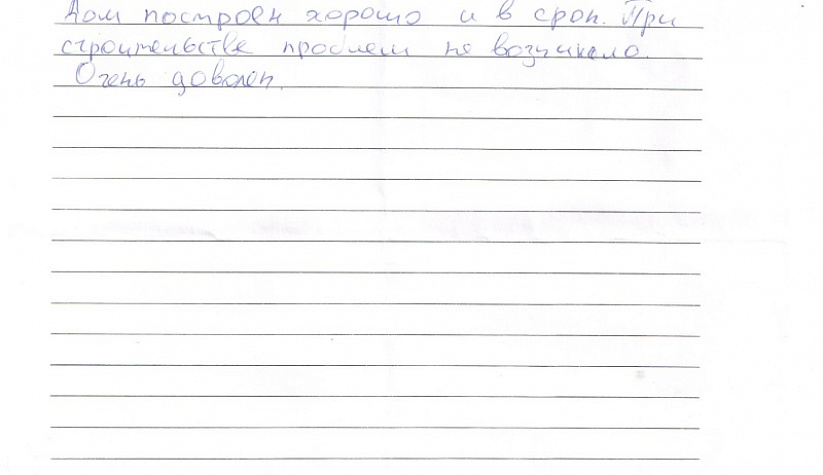 Дом построен хорошо и в срок. При
строительстве проблем не возникало.
Очень доволен.